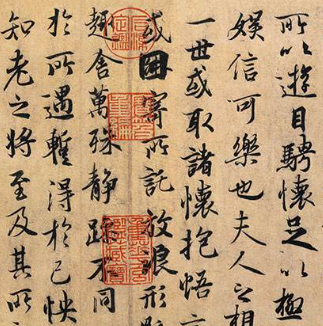 所以遊目騁懷足以極
娛信可樂也夫人之相
一世或取諸懷抱悟言
或因寄所託放浪形
趣舍萬殊靜躁不同
於所遇暫得於己怏
知老之將至及其所